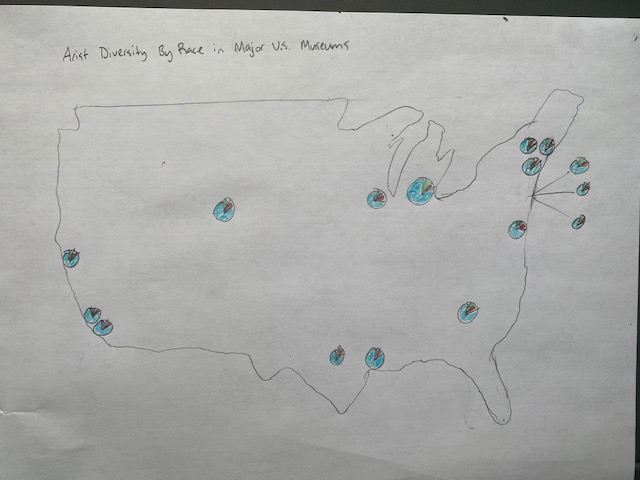 Arist Diversity By Race in Major U.S. Museums